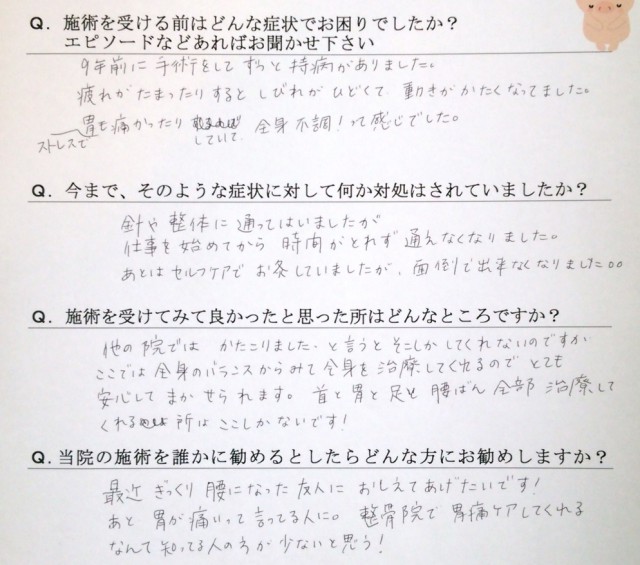 Q. 施術を受ける前はどんな症状でお困りでしたか？
エピソードなどあればお聞かせ下さい
9年前に手術をしてずっと持病がありました。
疲れがたまったりするとしびれがひどくて、動きがかたくなってました。
胃も痛かったりしていて 全身不調！って感じでした。
ストレスで
Q. 今まで、そのような症状に対して何か対処はされていましたか？
針や整体に通ってはいましたが
仕事を始めてから時間がとれず通えなくなりました。
あとはセルフケアでお灸していましたが、面倒で出来なくなりました。。
Q. 施術を受けてみて良かったと思った所はどんなところですか？
他の院ではかたこりました、と言うとそこしかしてくれないのですが
ここでは全身のバランスからみて全身を治療してくれるのでとても
安心してまかせられます。首と胃と足と腰ばん全部治療して
くれる所はここしかないです！
Q. 当院の施術を誰かに勧めるとしたらどんな方にお勧めしますか？
最近ぎっくり腰になった友人におしえてあげたいです！
あと胃が痛いって言ってる人に。整骨院で胃痛ケアしてくれる
なんて知ってる人の方が少ないと思う！